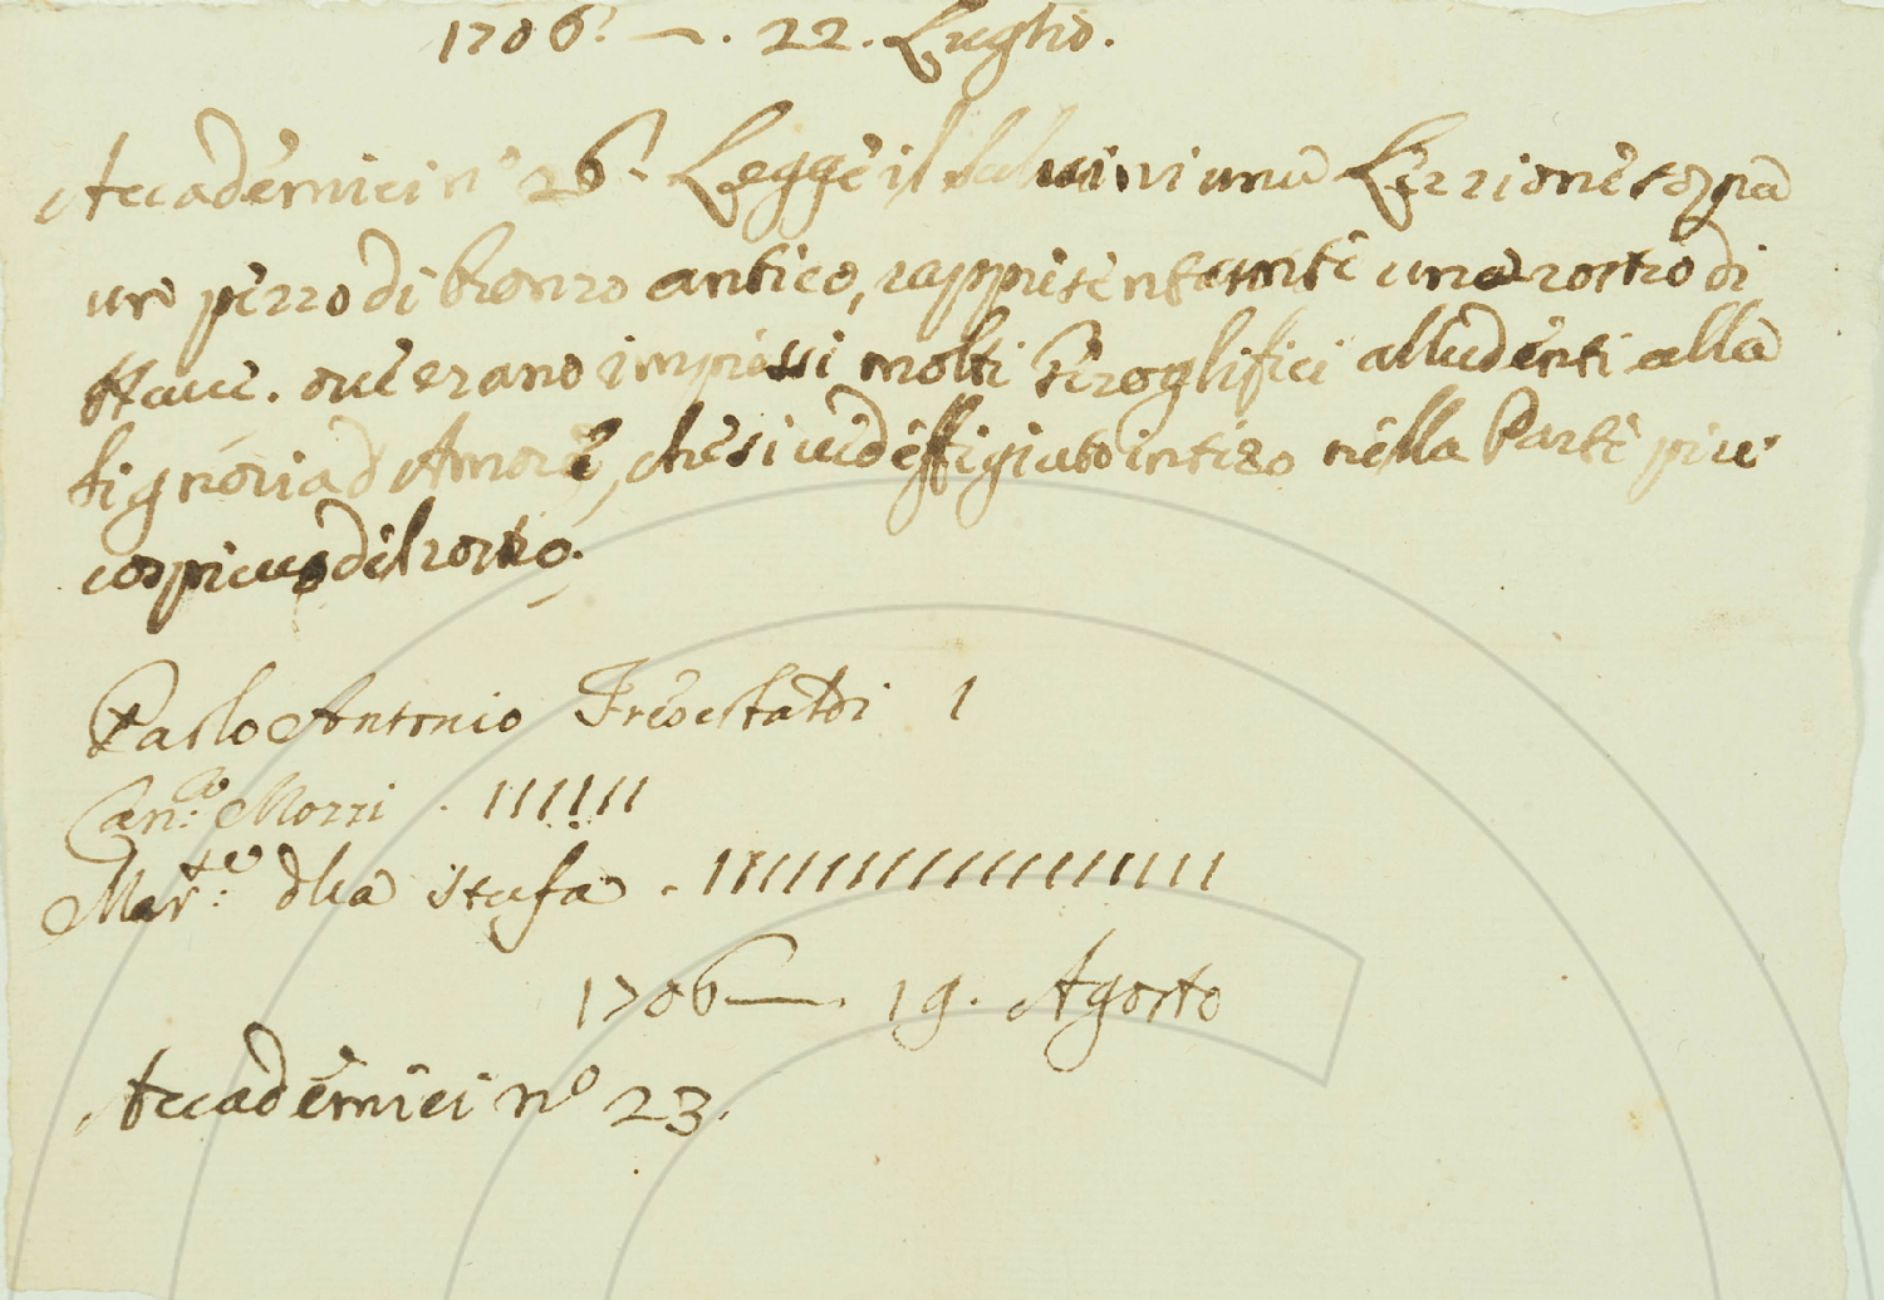 1706. — . 22. Luglio.
Accademici nº 26. Legge il Salvini una Lezzione sopra
un pezzo di bronzo antico, rappresentante una rostro di
Nave. ove erano impressi molti Geroglifici alludenti alla
signoria d'Amore, che si vide effigiato intero nella Parte piu
cospicua del rostro.
Carlo Antonio 1
Can:co Mozzi . 1111111
Mar:se dlla Stufa . 11111111111111111111
1706 — . 19. Agosto
Accademici nº 23.